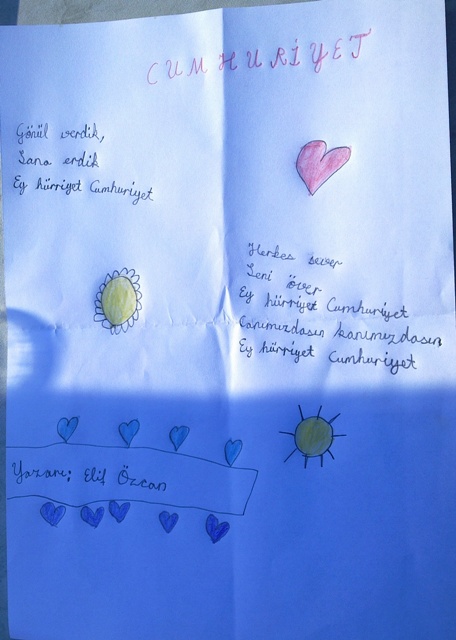 CUMHURİYET
Gönül verdik,
Sana erdik
Ey hürriyet Cumhuriyet
Herkes sever
Seni över
Ey hürriyet Cumhuriyet
Canımızdasın kanımızdasın
Ey hürriyet Cumhuriyet
Yazarı: Elif Özcan